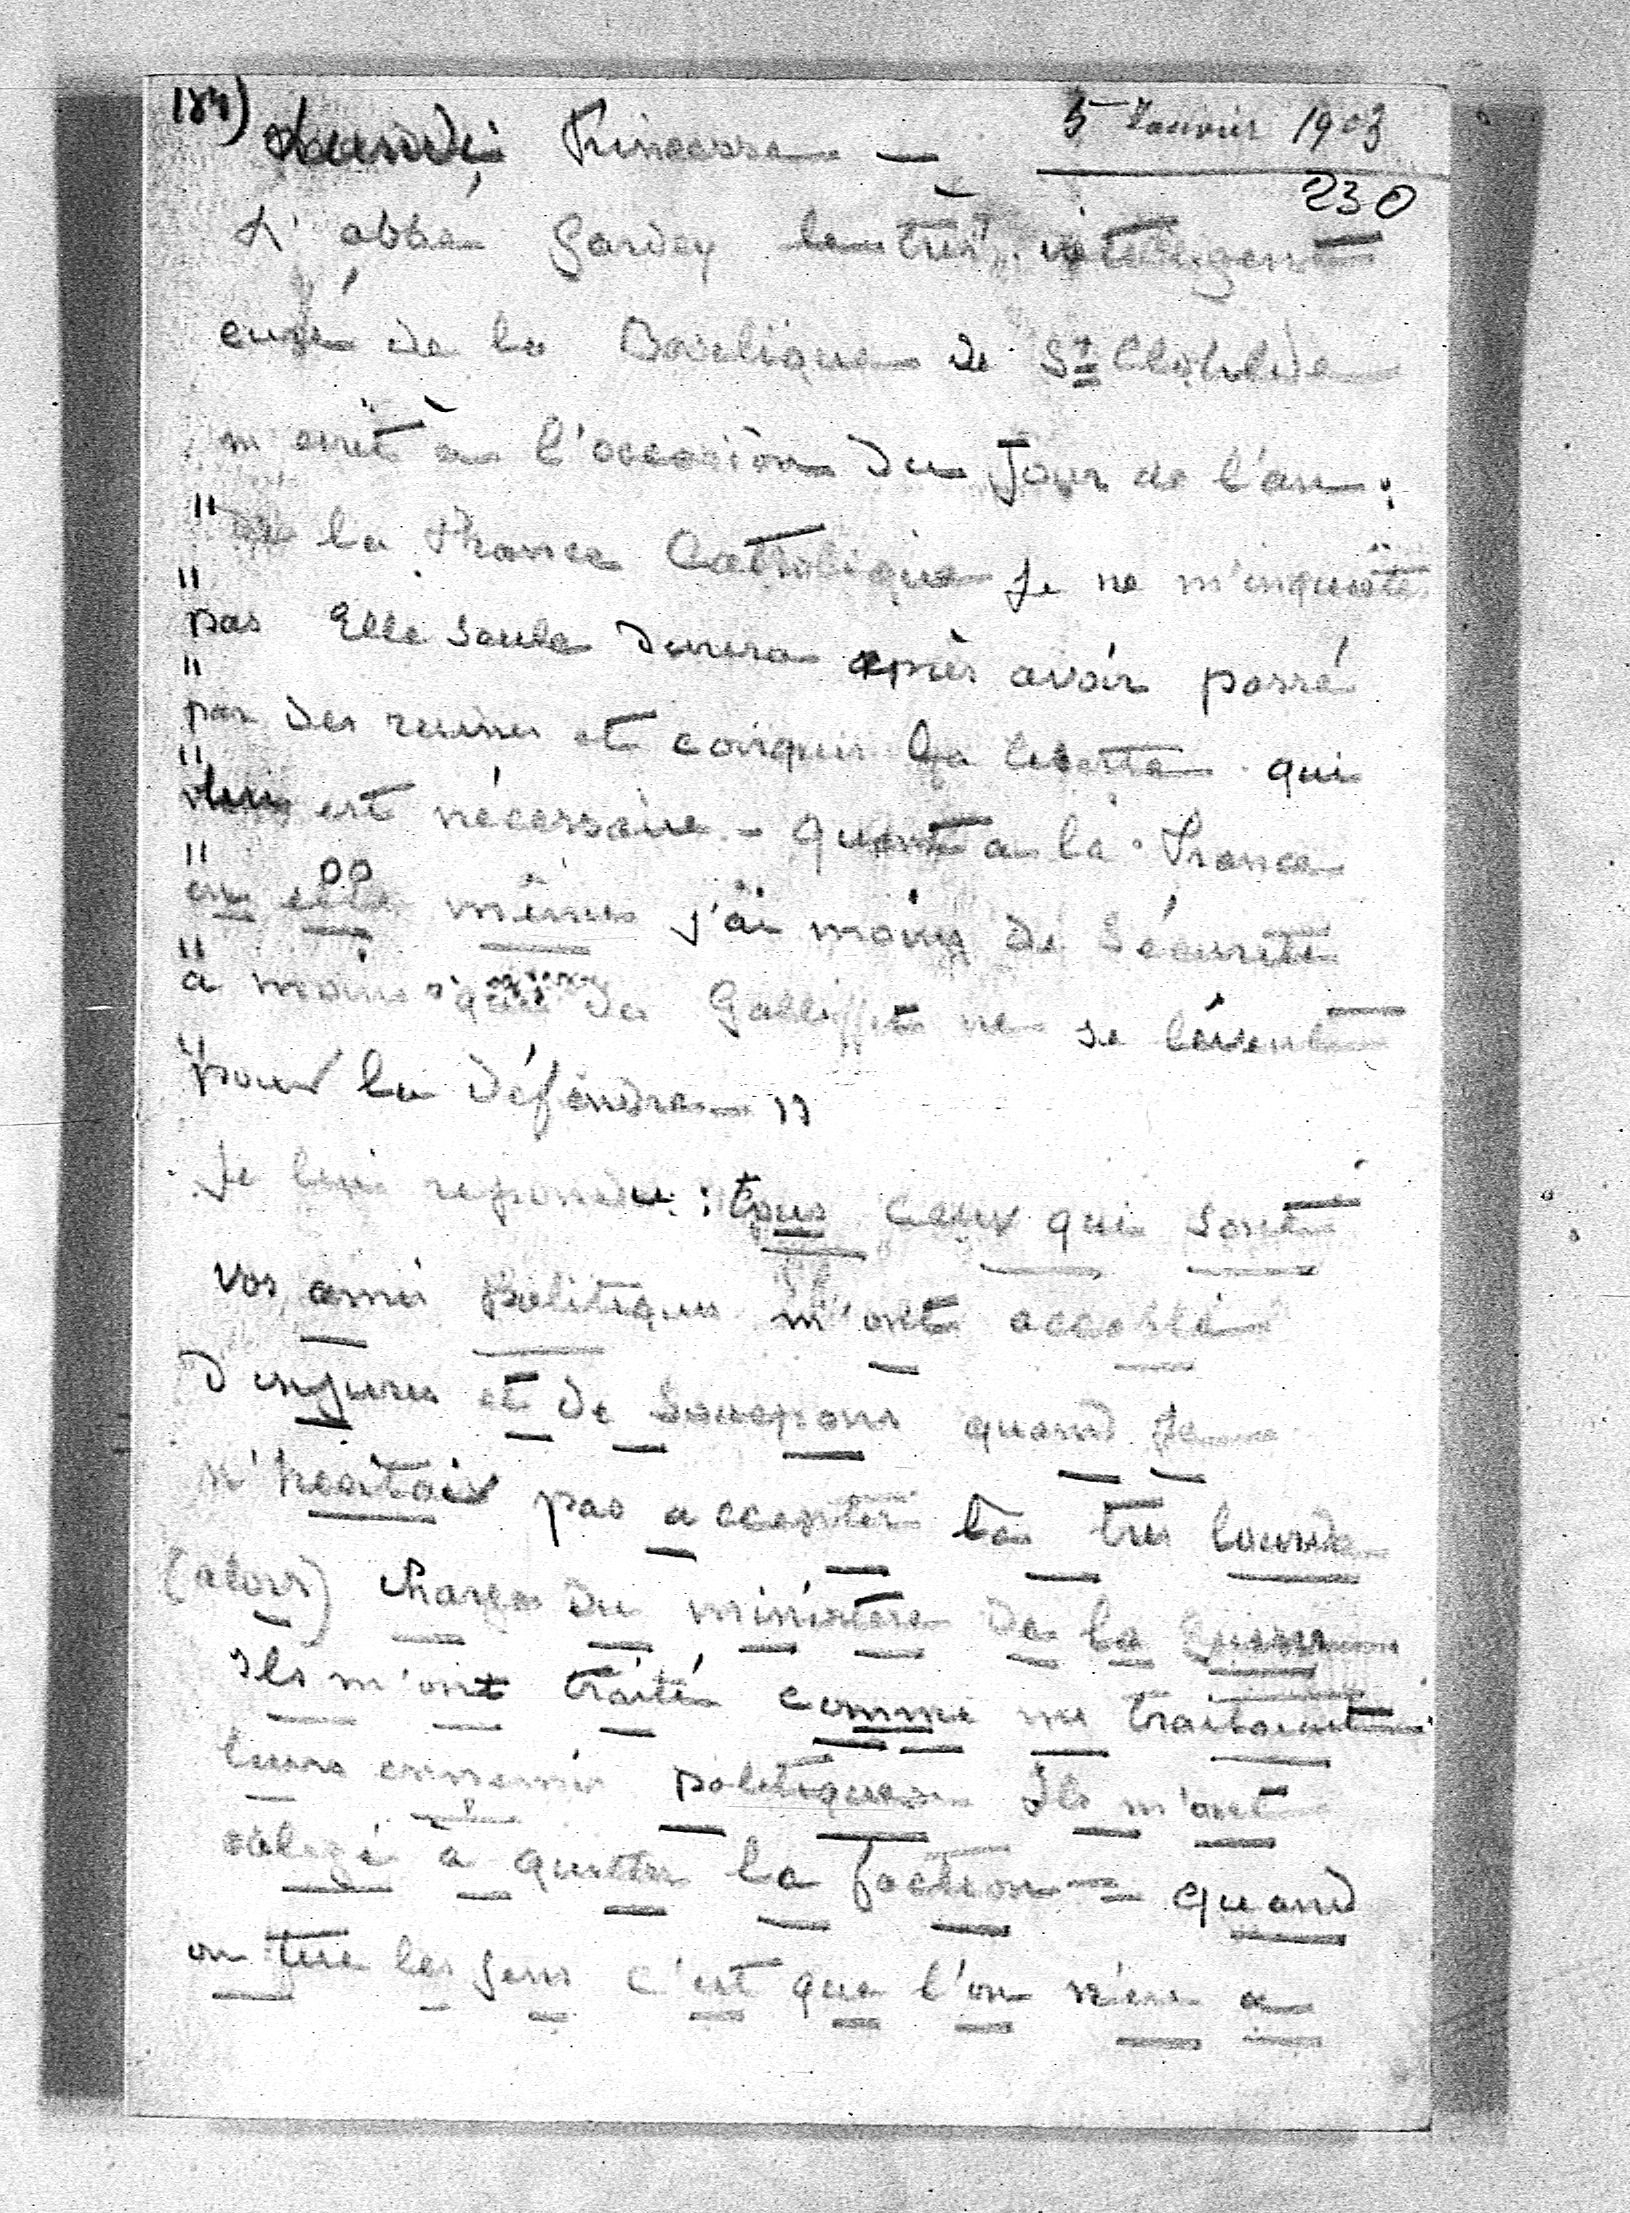 184) Lundi Princesse — 5 Janvier 1903
230
L'abbé Gardey le très intelligent
curé de la Basilique de Ste Clotilde
m'ecrit à l'occasion du Jour de l'an :
" de la France Catholique Je ne m'inquiète
" pas Elle seule durera après avoir passé
" par des ruines et conquis la liberté qui
" lui est nécessaire - quant a la France
" en elle même j'ai moins de sécurité
" à moins que des Galliffet ne se lèvent
" pour la défendre "
Je lui reponds : tous ceux qui sont
vos amis politiques m'ont accablé
d'injures et de soupçons quand Je
n'hesitais pas a accepter la très lourde
(alors) charge du ministère de la Guerre
ils m'ont traité comme me traitaient
leurs ennemis politiques Ils m'ont
obligé à quitter la faction = quand
on tue les gens c'est que l'on n'en a